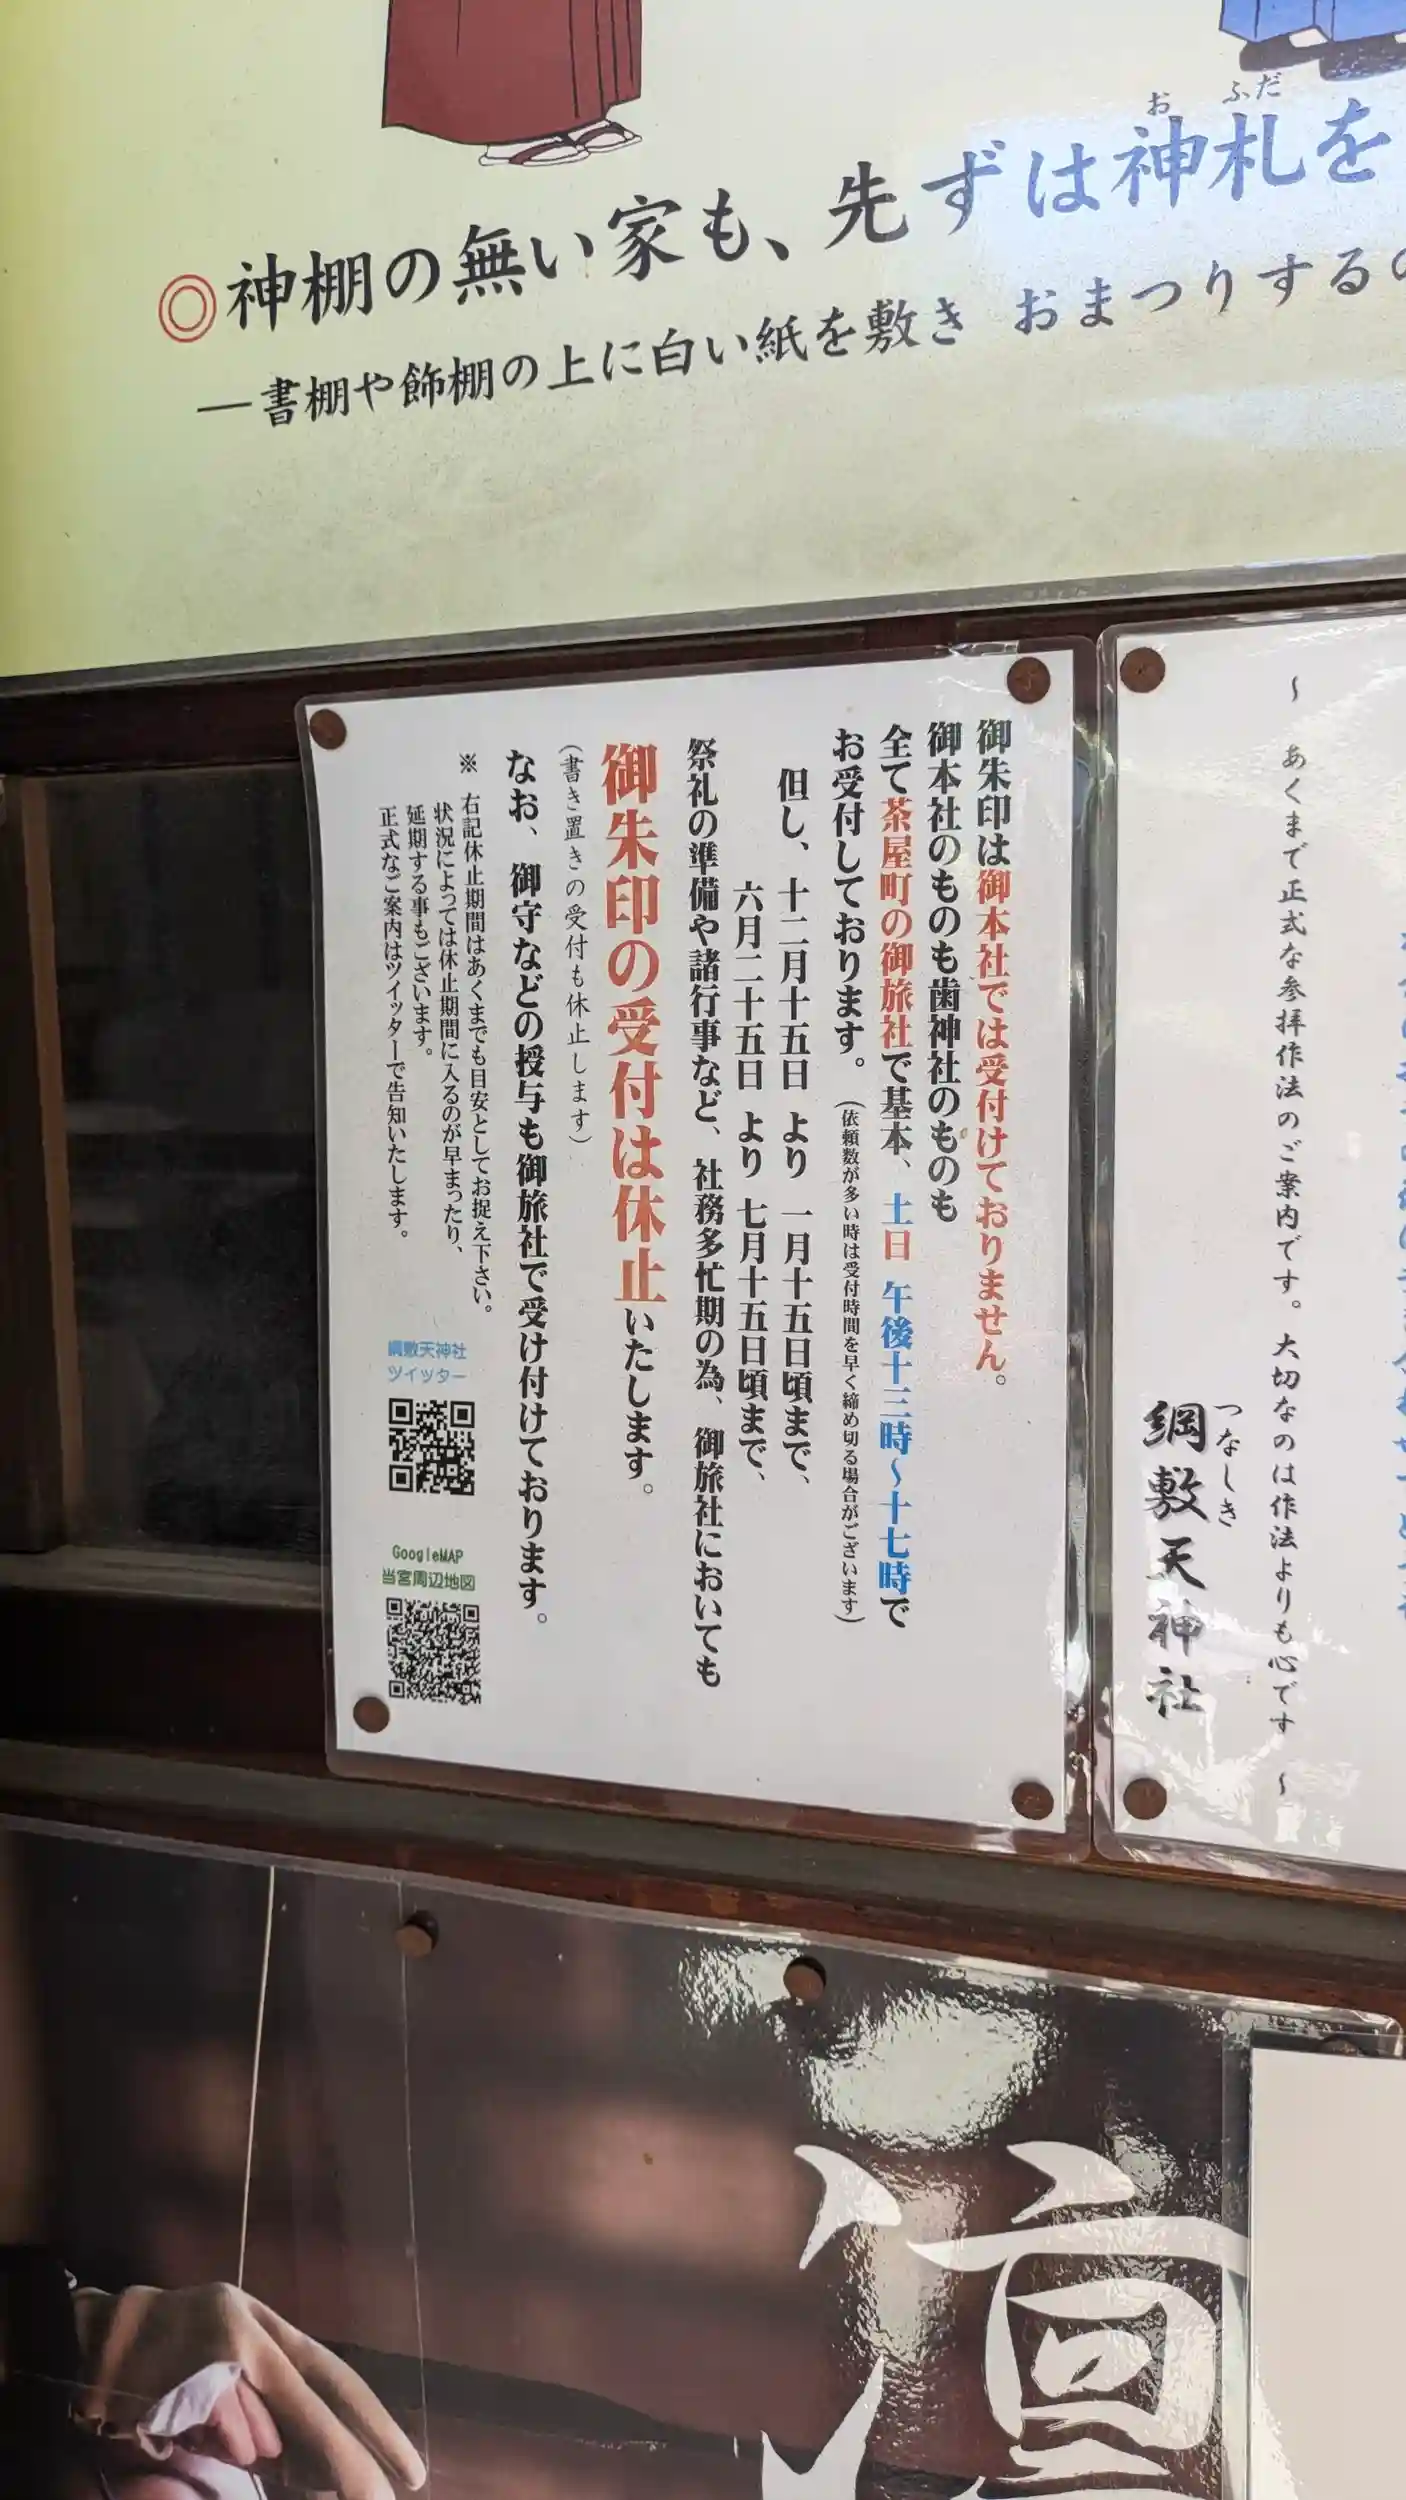 お ふだ
◎神棚の無い家も、先ずは神札を
―書棚や飾棚の上に白い紙を敷き おまつりする
～ あくまで正式な参拝作法のご案内です。大切なのは作法よりも心です ～
つなしき
綱敷天神社
御朱印は御本社では受付けておりません。
御本社のものも歯神社のものも
全て茶屋町の御旅社で基本、土日 午後十三時～十七時で
お受付しております。(依頼数が多い時は受付時間を早く締め切る場合がございます)
但し、十二月十五日 より 一月十五日頃まで、
六月二十五日 より 七月十五日頃まで、
祭礼の準備や諸行事など、社務多忙期の為、御旅社においても
御朱印の受付は休止いたします。
(書き置きの受付も休止します)
なお、御守などの授与も御旅社で受け付けております。
※ 右記休止期間はあくまでも目安としてお捉え下さい。
状況によっては休止期間に入るのが早まったり、
延期する事もございます。
正式なご案内はツイッターで告知いたします。
綱敷天神社
ツイッター
GoogleMAP
当宮周辺地図